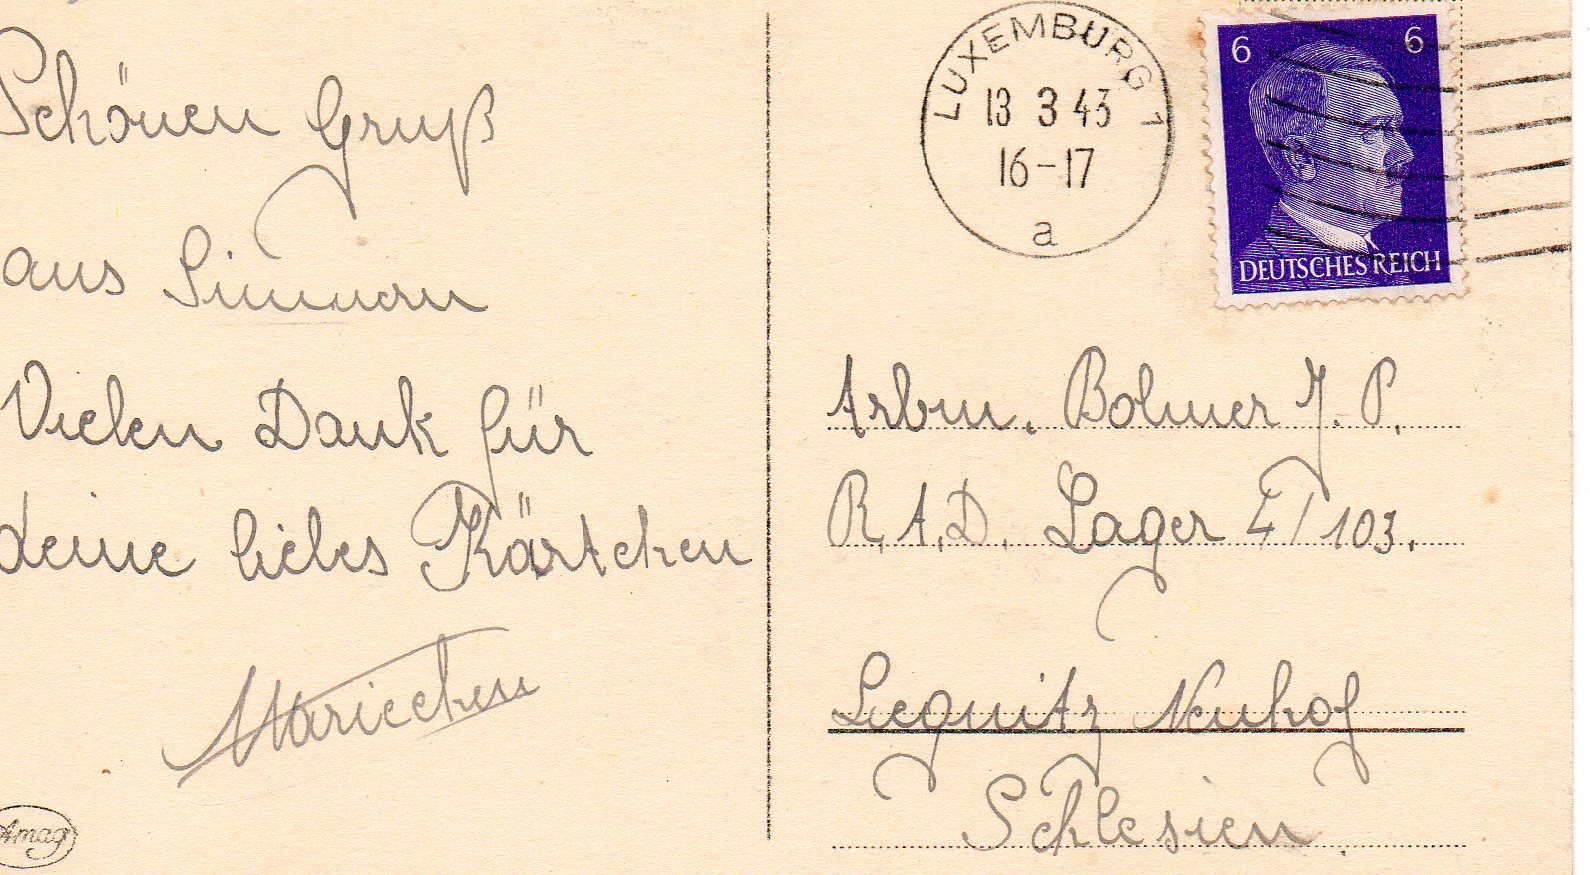 Schönen Gruß
aus Simmern
Vielen Dank für
deine liebes Kärtchen
Mariechen
Amag
LUXEMBURG 1
13 3 43
16-17
a
6 6
DEUTSCHES REICH
Arbm. Bolmer J. P.
R.A.D. Lager 4/103.
Liegnitz Neuhof
Schlesien.